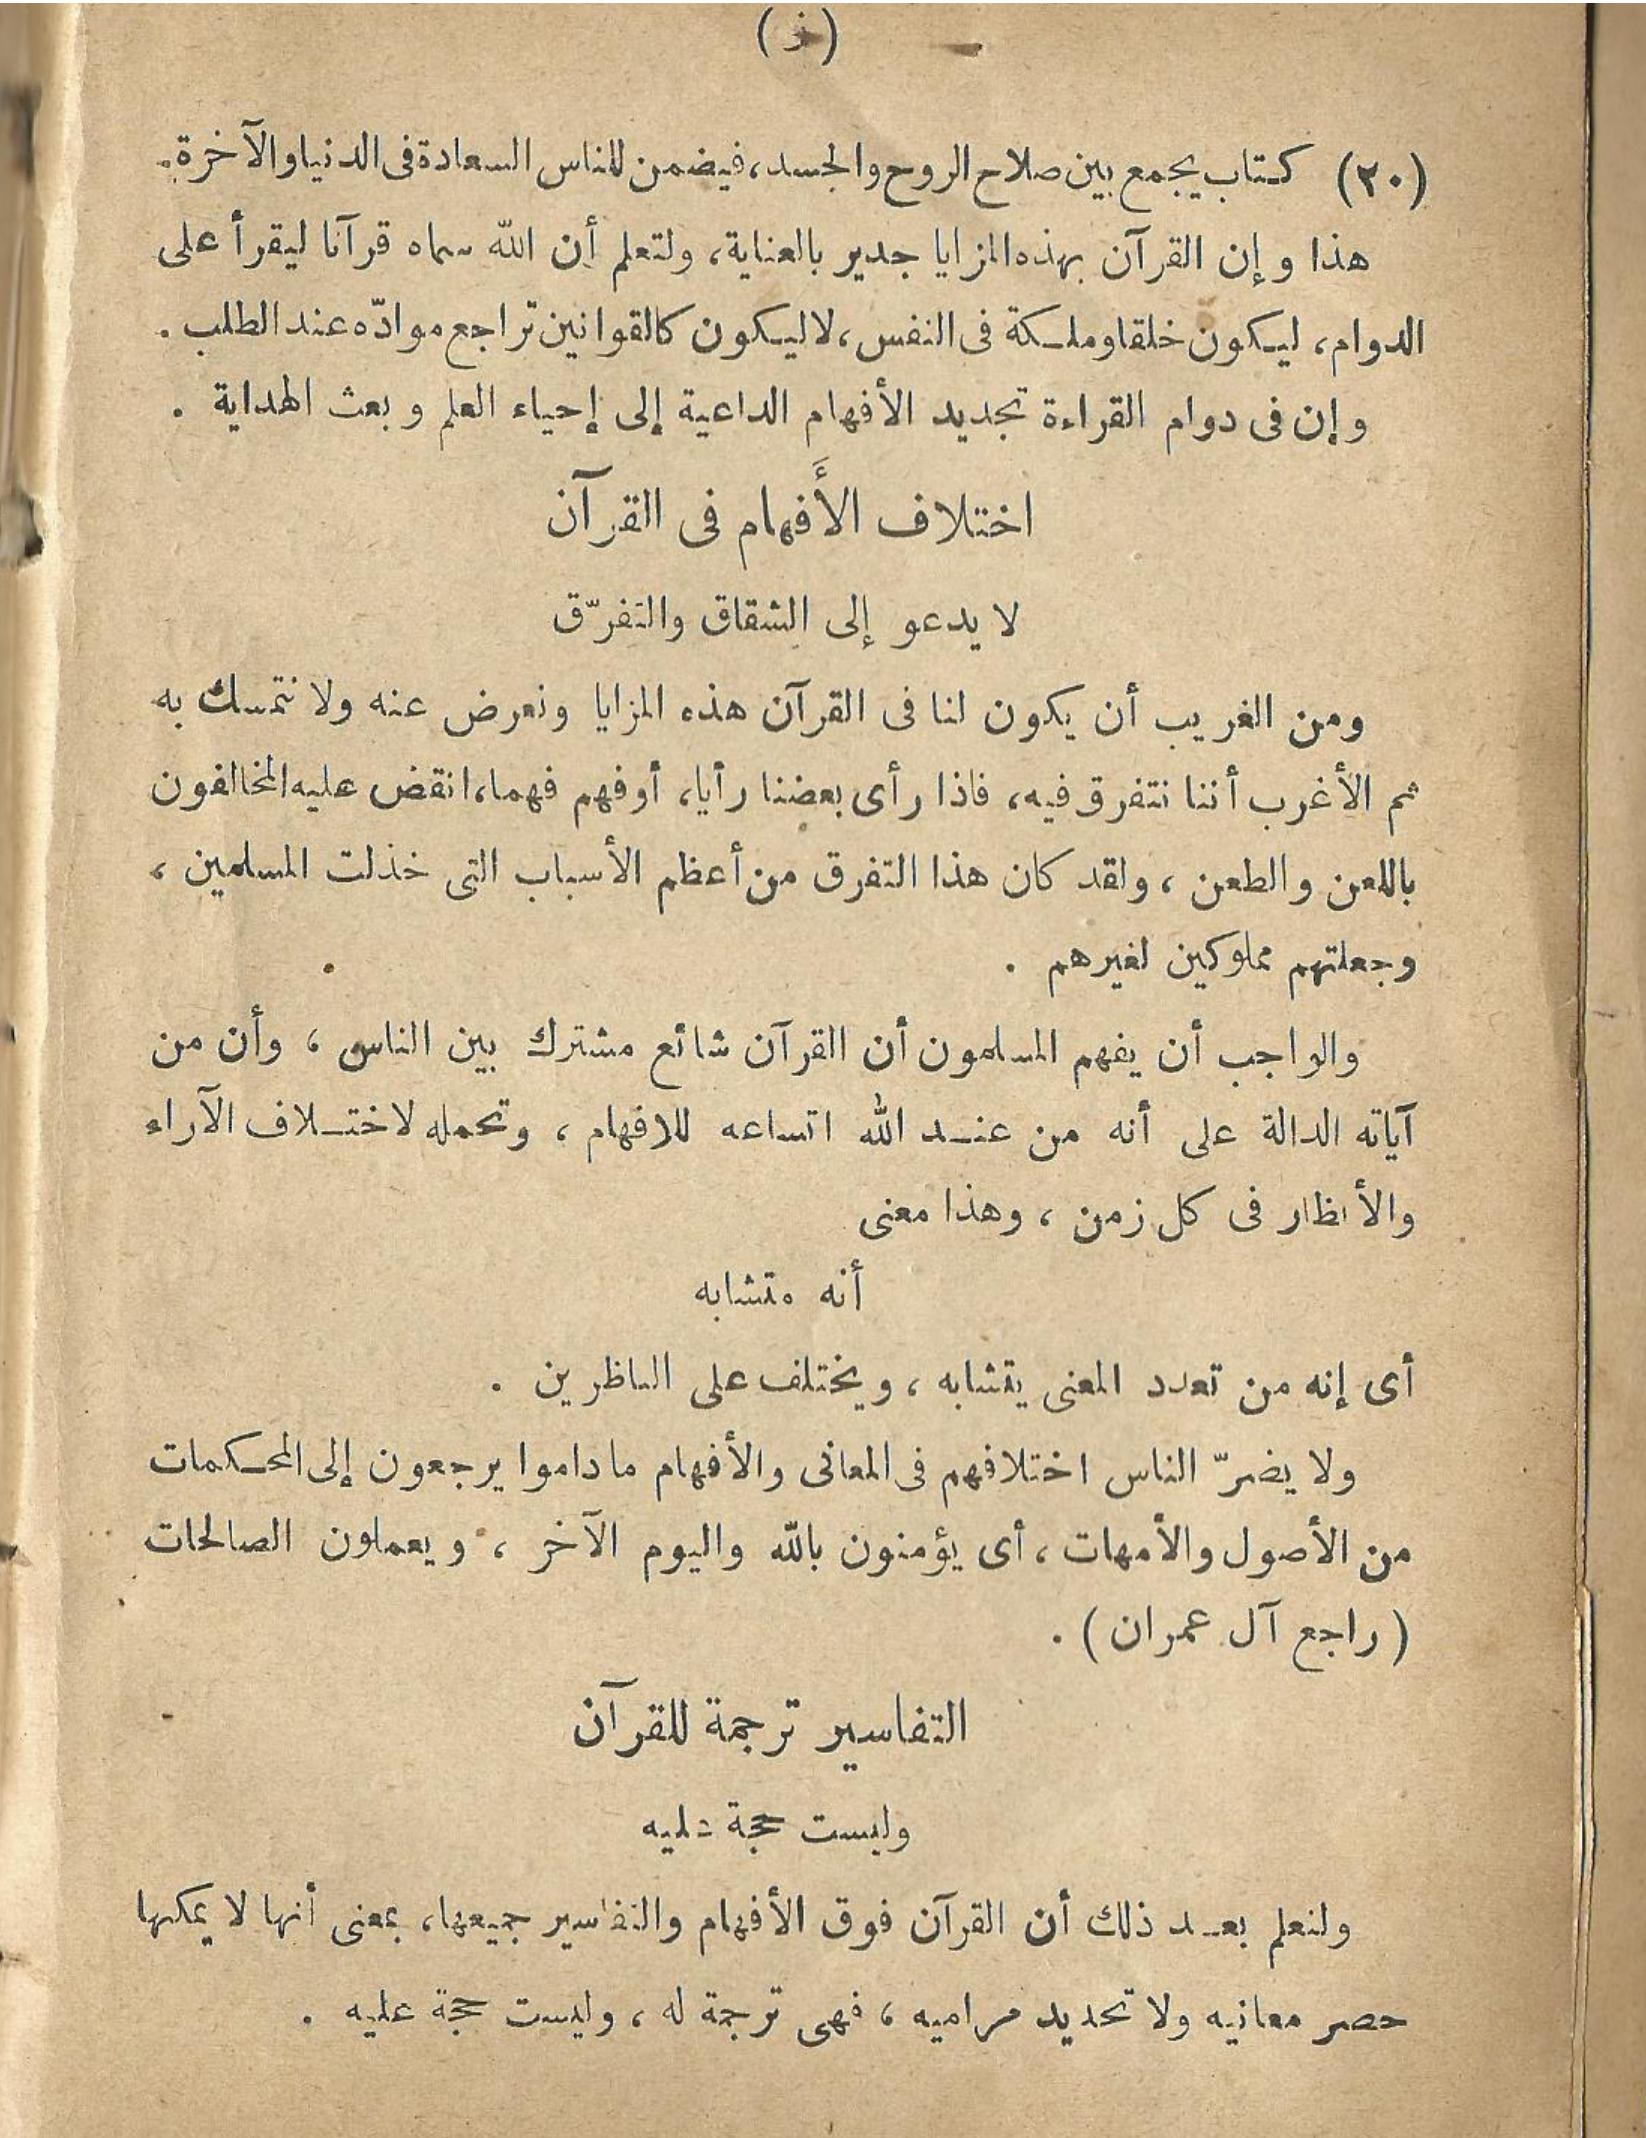 (ز)
(٢٠) كتاب يجمع بين صلاح الروح والجسد، فيضمن للناس السعادة فى الدنيا والآخرة.
هذا وإن القرآن بهذه المزايا جدير بالعناية، ولتعلم أن الله سماه قرآنا ليقرأ على
الدوام، ليكون خلقا وملكة فى النفس، لا ليكون كالقوانين تراجع موادّه عند الطلب.
وإن فى دوام القراءة تجديد الأفهام الداعية إلى إحياء العلم وبعث الهداية.
اختلاف الأَفهام فى القرآن
لا يدعو إلى الشقاق والتفرّق
ومن الغريب أن يكون لنا فى القرآن هذه المزايا ونعرض عنه ولا نتمسك به
ثم الأغرب أننا نتفرق فيه، فاذا رأى بعضنا رأيا، أو فهم فهما، انقض عليه المخالفون
باللعن والطعن، ولقد كان هذا التفرق من أعظم الأسباب التى خذلت المسلمين،
وجعلتهم مملوكين لغيرهم.
والواجب أن يفهم المسلمون أن القرآن شائع مشترك بين الناس، وأن من
آياته الدالة على أنه من عند الله اتساعه للافهام، وتحمله لاختلاف الآراء
والأنظار فى كل زمن، وهذا معنى
أنه متشابه
أى إنه من تعدد المعنى يتشابه، ويختلف على الناظرين.
ولا يضرّ الناس اختلافهم فى المعانى والأفهام ماداموا يرجعون إلى المحكمات
من الأصول والأمهات، أى يؤمنون بالله واليوم الآخر، ويعملون الصالحات
(راجع آل عمران).
التفاسير ترجمة للقرآن
وليست حجة عليه
ولنعلم بعد ذلك أن القرآن فوق الأفهام والتفاسير جميعها، بمعنى أنها لا يمكنها
حصر معانيه ولا تحديد مراميه، فهى ترجمة له، وليست حجة عليه.